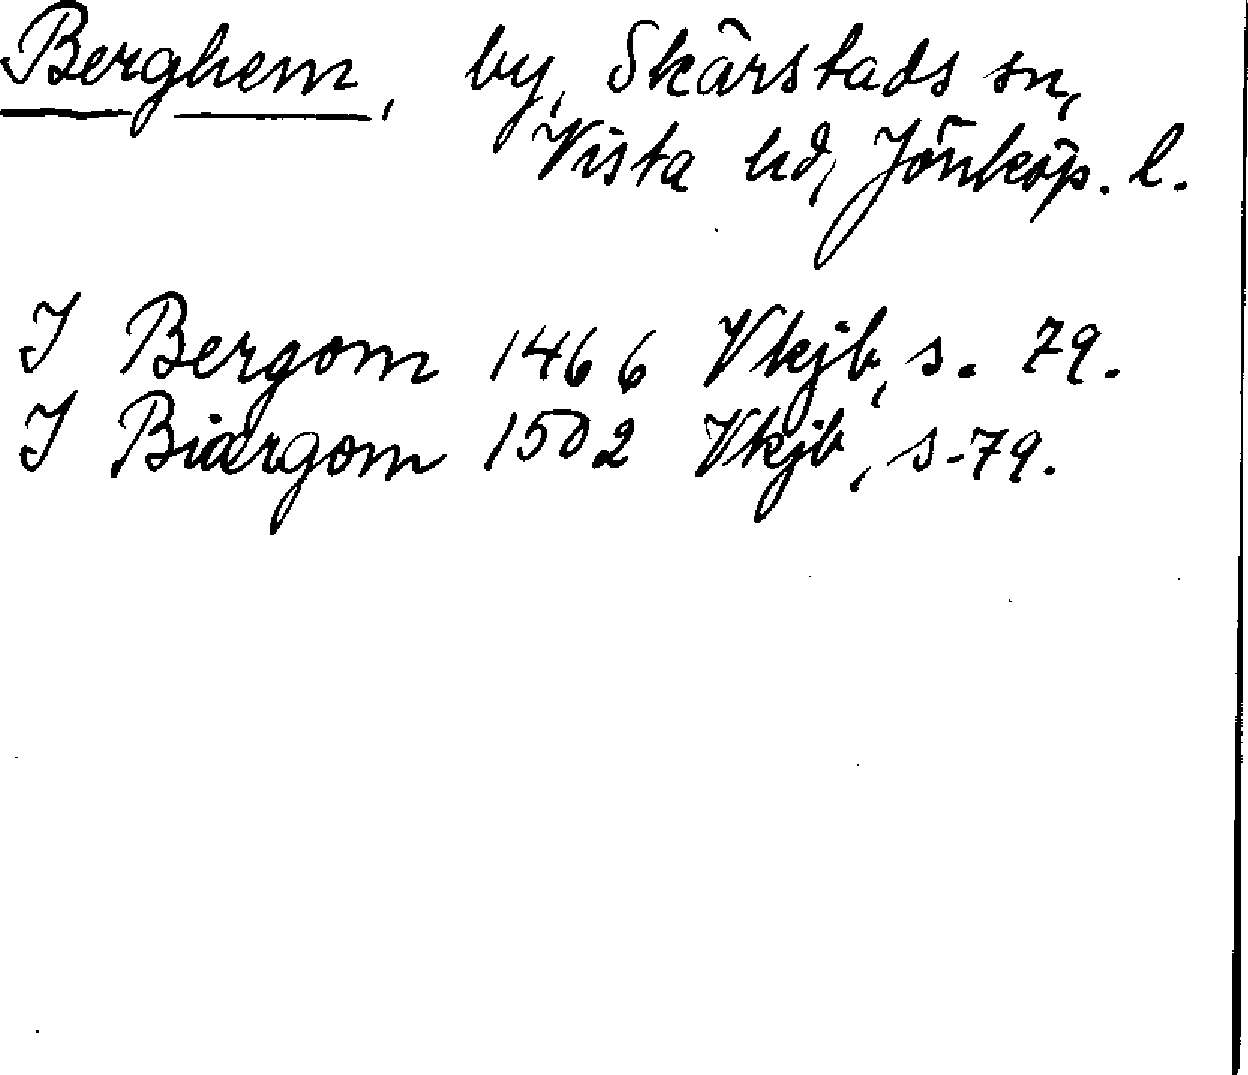 Berghem, by, Skärstads sn,
Vista hd, Jönköp. l.
I Bergom 1466 Vkjb, s. 79.
I Biærgom 1502 Vkjb, s. 79.